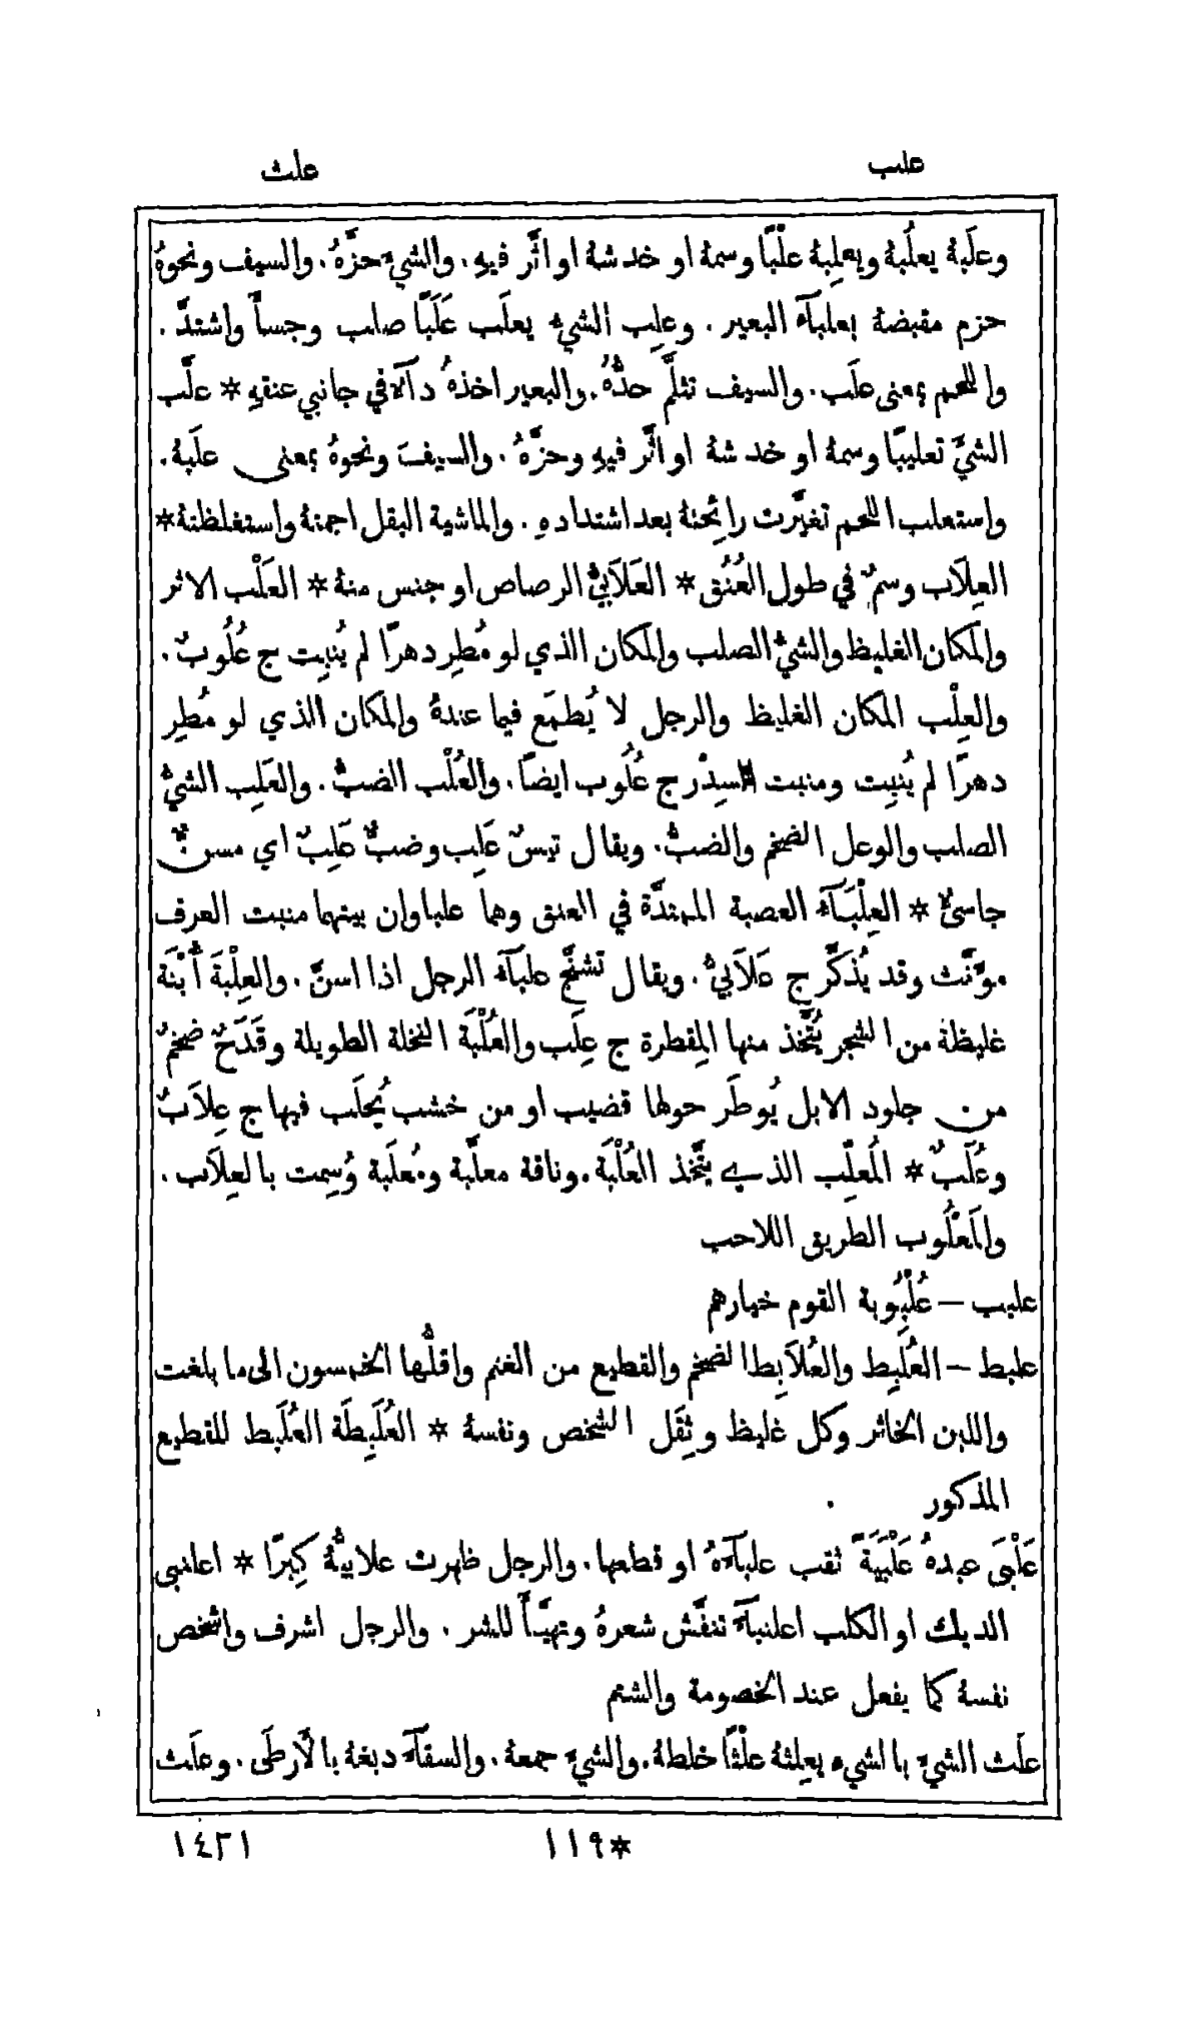 علب
علث
وعلَبهُ يعلُبهُ ويعلِبهُ علْبًا وسمهُ او خدشهُ او اثَّر فيهِ. والشيءَ حزَّهُ. والسيف ونحوهُ
حزم مقبضهُ بعلبآء البعير. وعلِب الشيءُ يعلَب عَلَبًا صلب وجسأ واشتدَّ.
واللحم بمعنى علَب. والسيف تثلَّم حدُّهُ. والبعير اخذهُ دآءٌ في جانبي عنقهِ * علَّب
الشيَّ تعليبًا وسمهُ او خدشهُ او اثَّر فيهِ وحزَّهُ. والسيفَ ونحوهُ بمعنى علَبهُ.
واستعلب اللحم تغيَّرت رائحتهُ بعد اشتدادهِ. والماشية البقل اجمتهُ واستغلظتهُ *
العِلَاب وسمٌ في طول العُنُق * العَلَابيُّ الرصاص او جنس منهُ * العَلْب الاثر
والمكان الغليظ والشيءُ الصلب والمكان الذي لو مُطِر دهرًا لم يُنبِت ج عُلُوبٌ.
والعِلْب المكان الغليظ والرجل لا يُطمَع فيما عندهُ والمكان الذي لو مُطِر
دهرًا لم يُنبِت ومنبت السِدْر ج عُلُوب ايضًا. والعُلْب الضبُّ. والعَلِب الشيءُ
الصلب والوعل الضخم والضبُّ. ويقال تيسٌ عَلِب وضبٌّ عَلِبٌ اي مسنٌّ
جاسئٌ * العِلْبَآء العصبة الممتدَّة في العنق وهما علباوان بينهما منبت العرف
مؤنَّث وقد يُذكَّر ج عَلَابيُّ. ويقال تشنَّج علبآء الرجل اذا اسنَّ. والعِلْبَة أُبْنَة
غليظة من الشجر يُتَّخذ منها المِقطرة ج عِلَب والعُلْبَة النخلة الطويلة وقَدَحٌ ضخمٌ
من جلود الابل يُوطَر حولها قضيب او من خشب يُحلَب فيها ج عِلَابٌ
وعُلَبٌ * المُعلِّب الذي يتَّخذ العُلْبَة. وناقة معلَّبة ومُعلَبة وُسِمت بالعِلَاب.
والمَعْلُوب الطريق اللاحب
علبب – عُلْبُوبة القوم خيارهم
علبط – العُلَبِط والعُلَابِط الضخم والقطيع من الغنم واقلُّها الخمسون الى ما بلغت
واللبن الخاثر وكل غليظ وثِقَل الشخص ونفسهُ * العُلَبِطَة العُلَبِط للقطيع
المذكور
عَلْبَى عبدهُ عَلْبَيَةً ثقب علبآءهُ او قطعها. والرجل ظهرت علابيُّهُ كِبَرًا * اعلنبى
الديك او الكلب اعلنبآءً تنفَّش شعرهُ وتهيَّأ للشر. والرجل اشرف واشخص
نفسهُ كما يفعل عند الخصومة والشتم
علَث الشيءَ بالشيء يعلِثهُ علْثًا خلطهُ. والشيءَ جمعهُ. والسقآءَ دبغهُ بالأَرطَى. وعلَث
*١١٩
١٤٢١